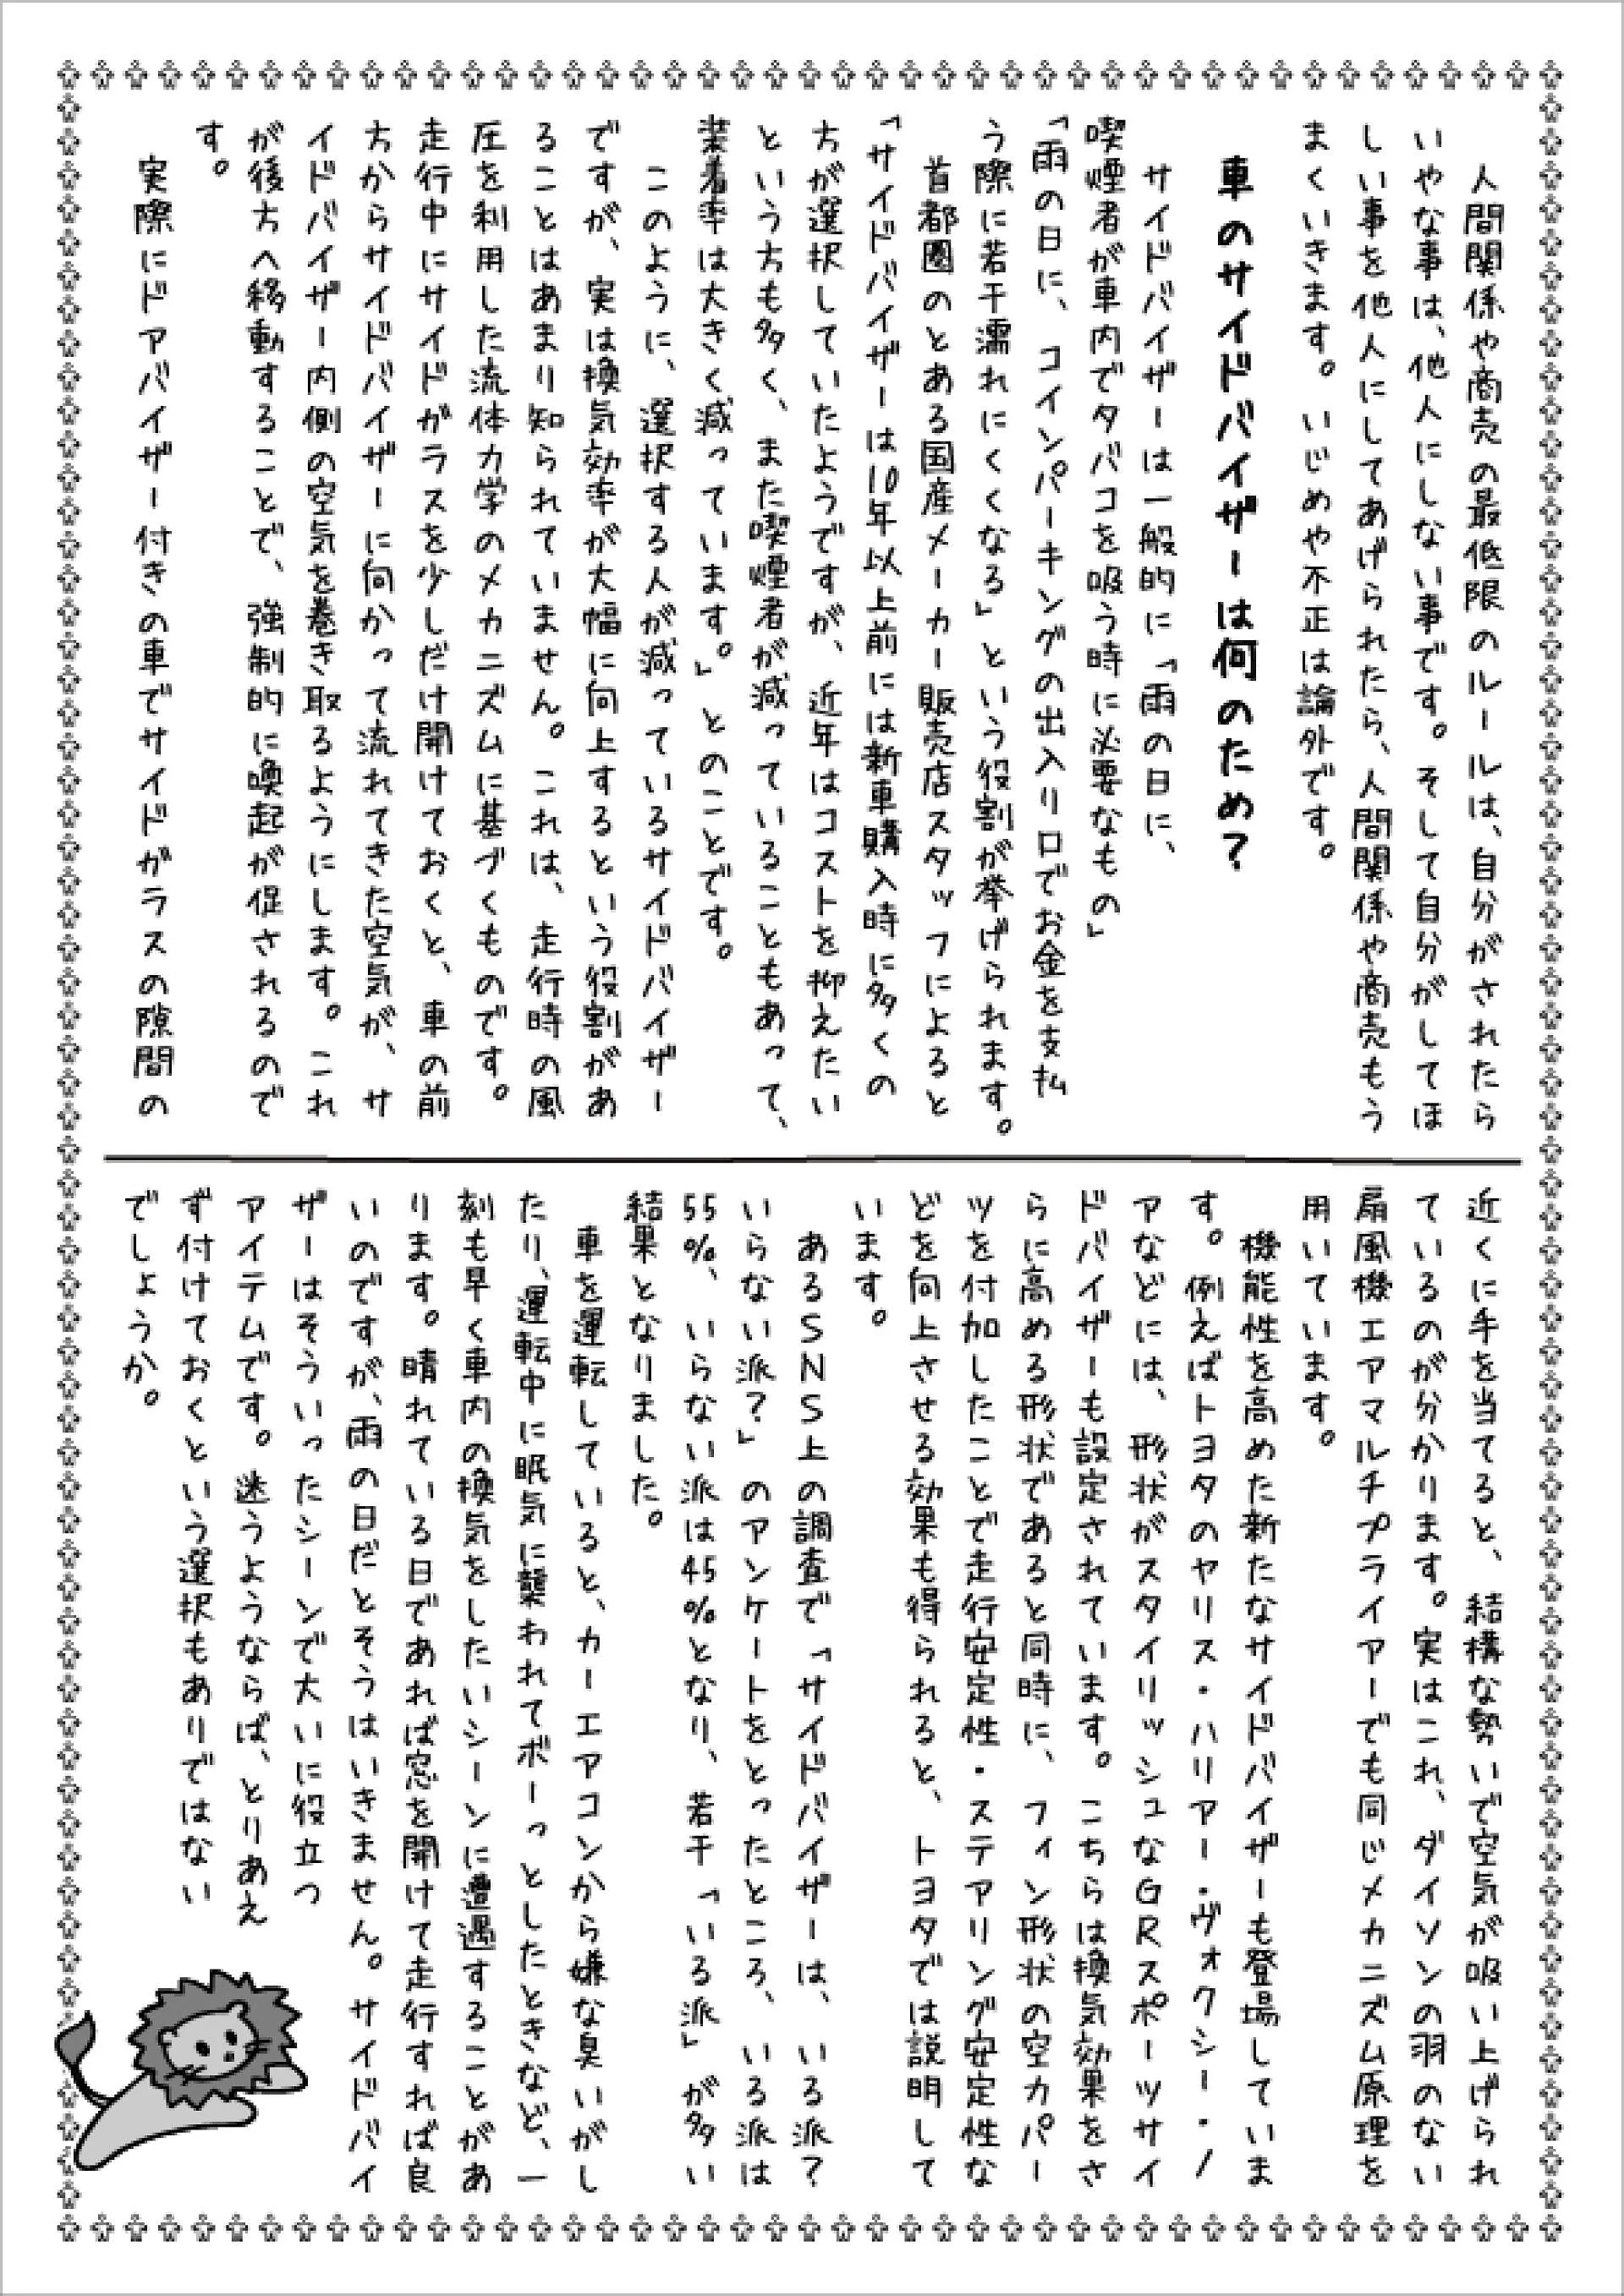 人間関係や商売の最低限のルールは、自分がされたら
いやな事は、他人にしない事です。そして自分がしてほ
しい事を他人にしてあげられたら、人間関係や商売もう
まくいきます。いじめや不正は論外です。
車のサイドバイザーは何のため？
サイドバイザーは一般的に「雨の日に、
喫煙者が車内でタバコを吸う時に必要なもの」
「雨の日に、コインパーキングの出入り口でお金を支払
う際に若干濡れにくくなる」という役割が挙げられます。
首都圏のとある国産メーカー販売店スタッフによると
「サイドバイザーは10年以上前には新車購入時に多くの
方が選択していたようですが、近年はコストを抑えたい
という方も多く、また喫煙者が減っていることもあって、
装着率は大きく減っています。」とのことです。
このように、選択する人が減っているサイドバイザー
ですが、実は換気効率が大幅に向上するという役割があ
ることはあまり知られていません。これは、走行時の風
圧を利用した流体力学のメカニズムに基づくものです。
走行中にサイドガラスを少しだけ開けておくと、車の前
方からサイドバイザーに向かって流れてきた空気が、サ
イドバイザー内側の空気を巻き取るようにします。これ
が後方へ移動することで、強制的に喚起が促されるので
す。
実際にドアバイザー付きの車でサイドガラスの隙間の
近くに手を当てると、結構な勢いで空気が吸い上げられ
ているのが分かります。実はこれ、ダイソンの羽のない
扇風機エアマルチプライアーでも同じメカニズム原理を
用いています。
機能性を高めた新たなサイドバイザーも登場していま
す。例えばトヨタのヤリス・ハリアー・ヴォクシー・ノ
アなどには、形状がスタイリッシュなＧＲスポーツサイ
ドバイザーも設定されています。こちらは換気効果をさ
らに高める形状であると同時に、フィン形状の空力パー
ツを付加したことで走行安定性・ステアリング安定性な
どを向上させる効果も得られると、トヨタでは説明して
います。
あるＳＮＳ上の調査で「サイドバイザーは、いる派？
いらない派？」のアンケートをとったところ、いる派は
55％、いらない派は45％となり、若干「いる派」が多い
結果となりました。
車を運転していると、カーエアコンから嫌な臭いがし
たり、運転中に眠気に襲われてボーっとしたときなど、一
刻も早く車内の換気をしたいシーンに遭遇することがあ
ります。晴れている日であれば窓を開けて走行すれば良
いのですが、雨の日だとそうはいきません。サイドバイ
ザーはそういったシーンで大いに役立つ
アイテムです。迷うようならば、とりあえ
ず付けておくという選択もありではない
でしょうか。